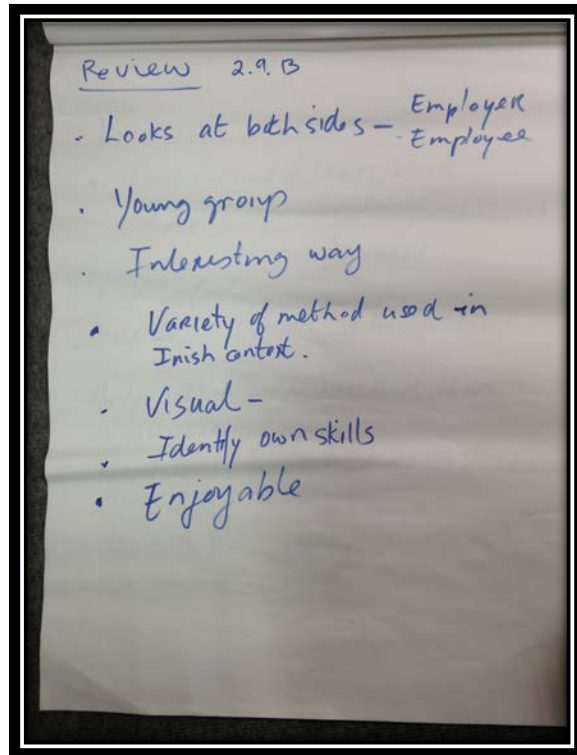 Review 2.9.B
. Looks at both sides - Employer
- Employee
. Young group
. Interesting way
. Variety of method used in
Irish context.
. Visual -
. Identify own skills
. Enjoyable